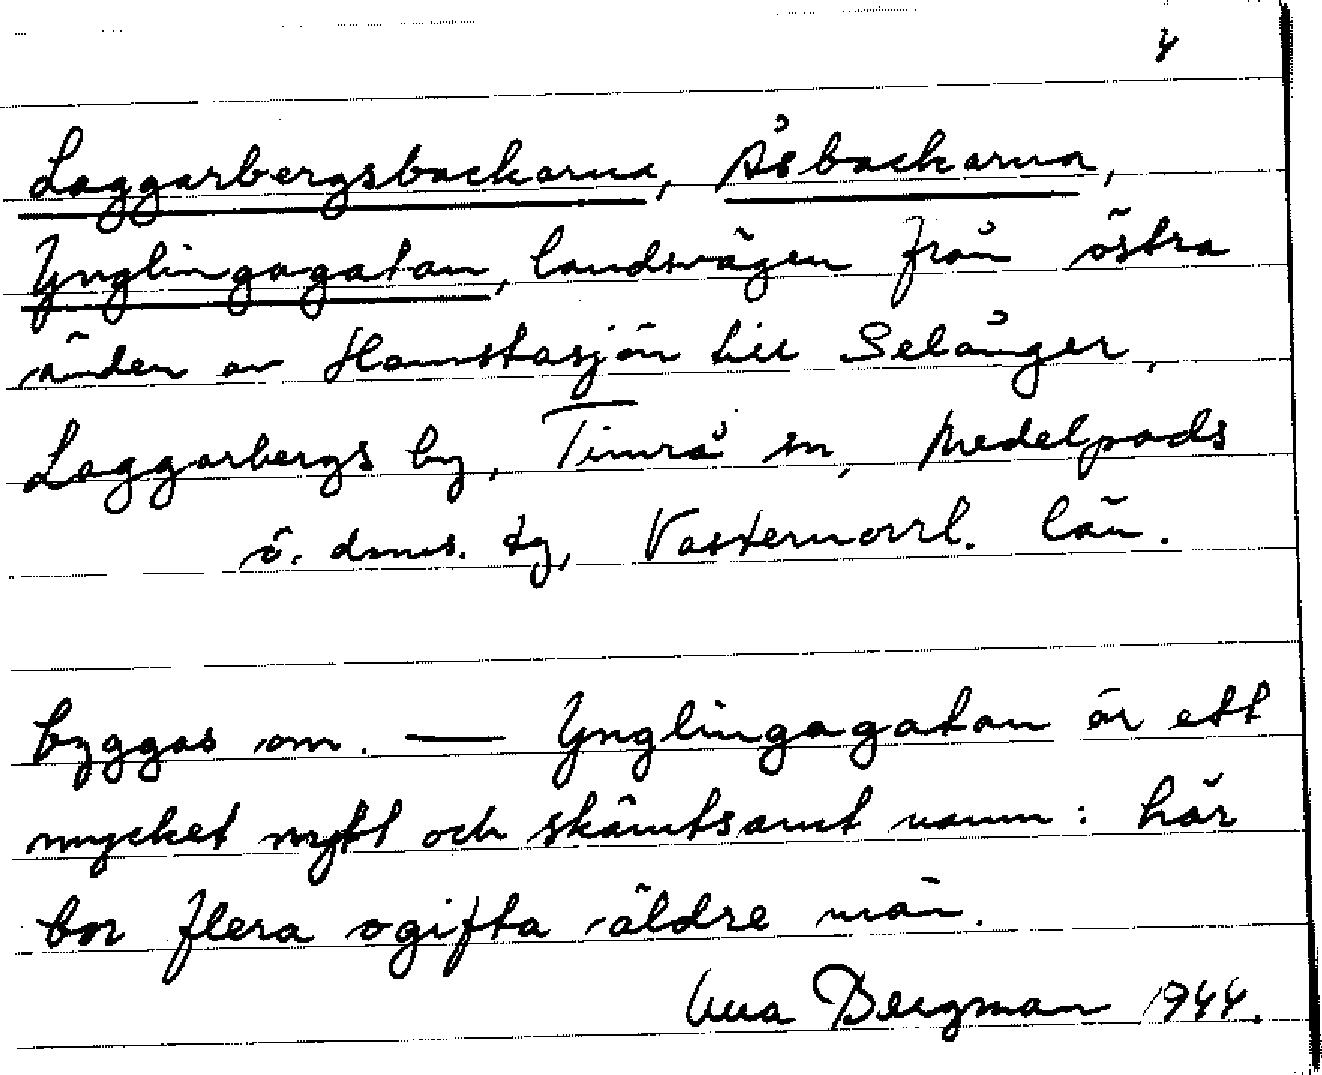 4
Laggarbergsbackarna, Åsbackarna,
Ynglingagatan, landsvägen från östra
änden av Hamstasjön till Selånger,
Laggarbergs by, Timrå sn, Medelpads
ö. doms. tg, Västernorrl. län.
byggas om. — Ynglingagatan är ett
mycket nytt och skämtsamt namn: här
bor flera ogifta äldre män.
Bergman 1944.